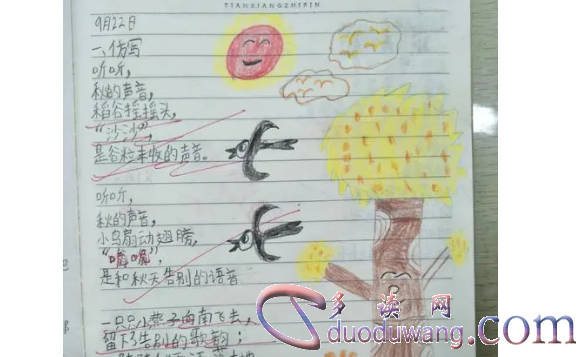 TIANXIANGZHIPIN
9月22日
一、仿写
听听,
秋的声音,
稻谷摇摇头,
“沙沙”,
是谷粒丰收的声音。
听听,
秋的声音,
小鸟扇动翅膀,
是和秋天告别的语音
一只只小燕子向南飞去,
留下了告别的歌韵;
多读网
duoduwang.com